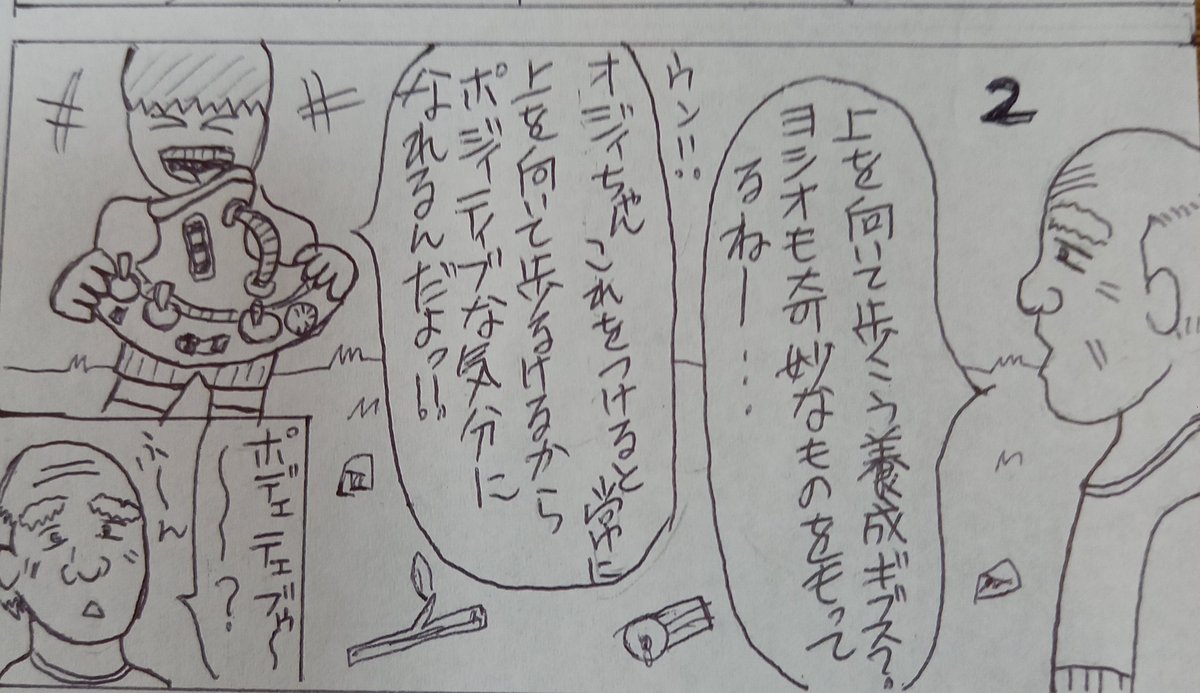 2
上を向いて歩こう養成ギブス?
ヨシオも奇妙なものをもって
るねー…
ウン!!
オジィちゃん これをつけると 常に
上を向いて歩るけるから
ポジティブな気分に
なれるんだよっ!!
ポヂェテェブゥ〜
〜〜?
ふーん